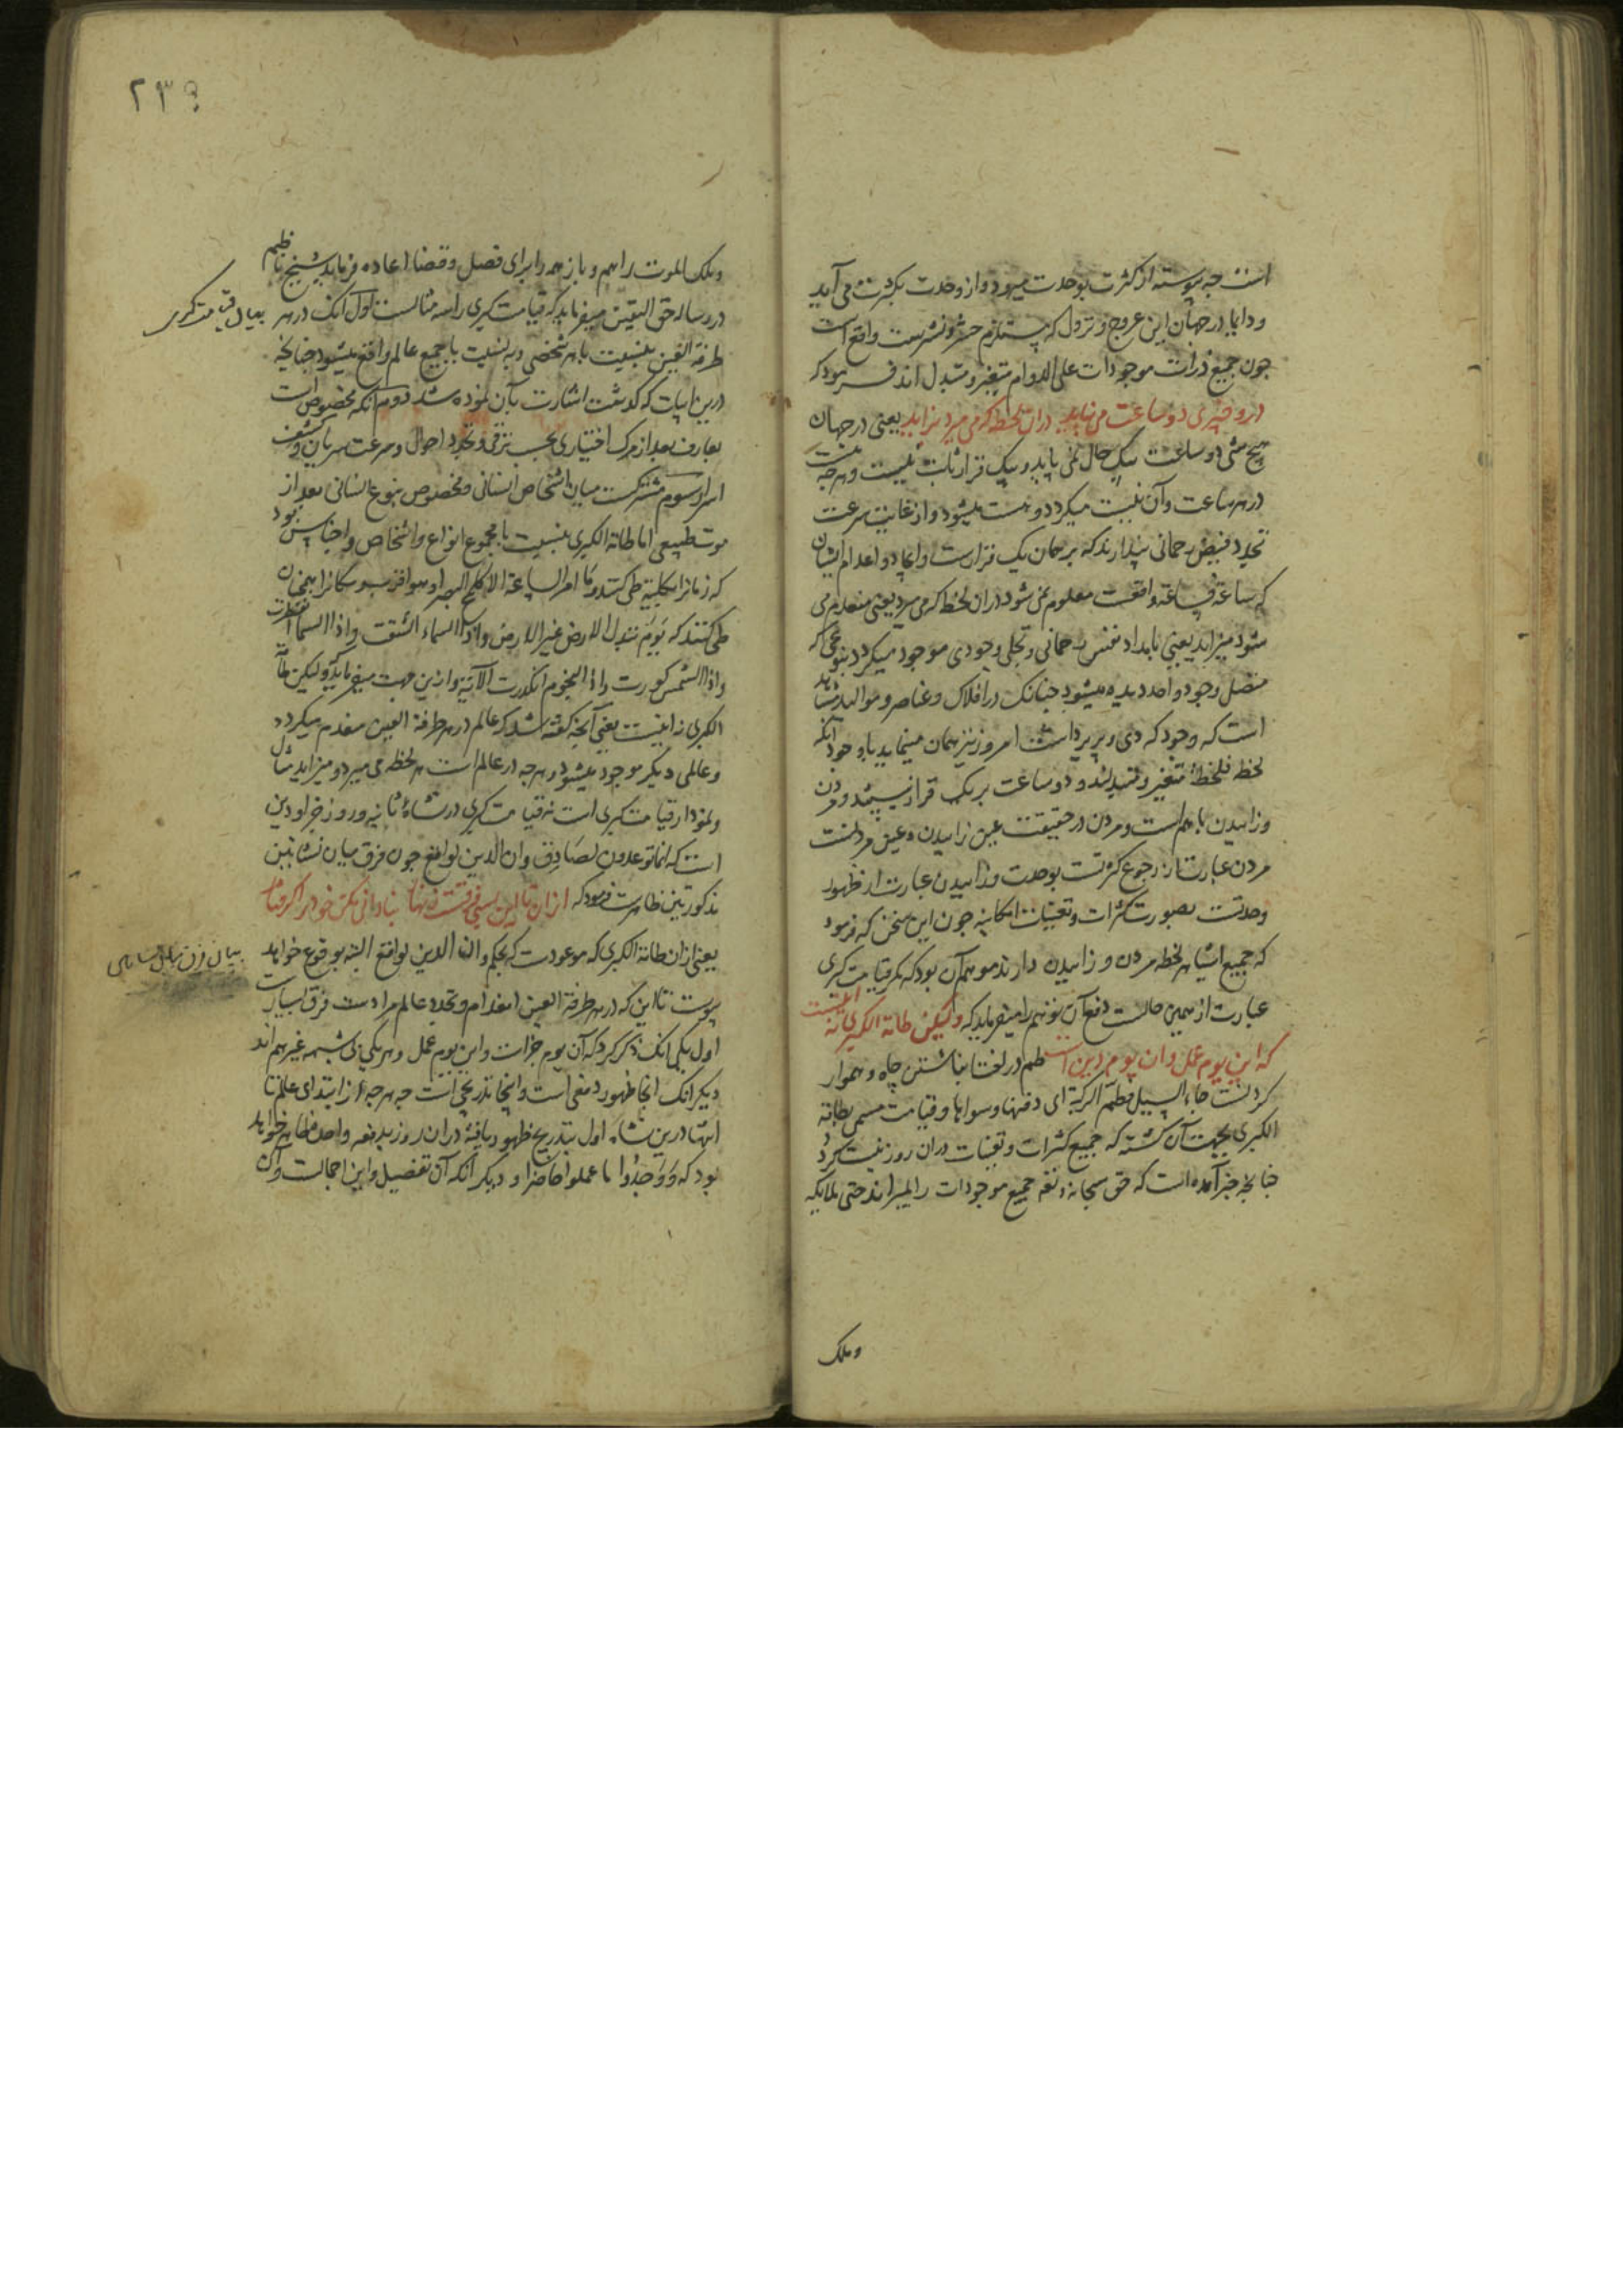 است چه پیوسته از کثرت بوحدت میرود و از وحدت بکثرت می آید
و دایما در جهان این عروج و نزول که مستلزم حشر و نشرست واقع است
چون جمیع ذرات موجودات علی الدوام متغیر و متبدل اند فرمود که
درو چیزی دو ساعت می نپاید دران لحظه که می میرد بزاید یعنی در جهان
هیچ شی دو ساعت بیک حال نمی پاید و بیک قرار ثابت نیست و هرچه هست
در هر ساعت و آن نیست میکردد و هست میشود و از غایت سرعت
تجدد فیض رحمانی پندارند که بر همان یک قرارست و ایجاد و اعدام ایشان
که ساعة فساعة واقعست معلوم نمی شود دران لحظه که می میرد یعنی منعدم می
شود میزاید یعنی بامداد نفس رحمانی و تجلی وجودی موجود میکردد بنوعی که
متصل وجود واحد دیده میشود چنانک در افلاک و عناصر و موالید مشاهد
است که وجود که دی و پریر داشت امروز نیز همان مینماید با وجود آنکه
لحظة فلحظة متغیر و متبدلند و دو ساعت بر یک قرار نیستند و مردن
و زاییدن با هم است و مردن در حقیقت عین زاییدن و عین مردنست
مردن عبارت از رجوع کثرتست بوحدت و زاییدن عبارت از ظهور
وحدتست بصورت کثرات و تعینات امکانیه چون این سخن که فرمود
که جمیع اشیا هر لحظه مردن و زاییدن دارند موهم آن بود که مکر قیامت کبری
عبارت از همین حالست دفع آن توهم را میفرماید که ولیکن طامة الکبری نه اینست
که این یوم عمل وان یوم دین است طم در لغت انباشتن چاه و هموار
کردنست جاء السیل فطم الرکیة ای دفنها و سواها و قیامت مسمی بطامة
الکبری بجهت آن کشته که جمیع کثرات و تعینات دران روز نیست کردد
چنانچه در خبر آمده است که حق سبحانه و تعالی جمیع موجودات را بمیراند حتی ملایکه
وملک
۲۳۹
وملک الموت را هم و باز همه را برای فصل و قضا اعاده فرماید شیخ ناظم
در رساله حق الیقین میفرماید که قیامت کبری را سه مثالست اول آنک در هر
بیان قیامت کبری
طرفة العین بنسبت با هر شخصی و به نسبت با جمیع عالم واقع میشود چنانچه
درین ابیات که کذشت اشارت بآن نموده شد دوم آنکه مخصوص است
بعارف بعد از مرک اختیاری بحسب ترقی و تجدد احوال و سرعت سریان و کشف
اسرار سوم مشترکست میان اشخاص انسانی و مخصوص بنوع انسانی بعد از
موت طبیعی اما طامة الکبری بنسبت با مجموع انواع و اشخاص و اجناس بود
که زمانرا بکلیة طی کنند و ما امر الساعة الا کلمح البصر او هو اقرب و مکانرا همچنان
طی کنند که یوم تبدل الارض غیر الارض و اذا السماء انشقت و اذا السماء انفطرت
و اذا الشمس کورت و اذا النجوم انکدرت الآیة و ازین جهت میفرماید که ولیکن طامة
الکبری نه اینست یعنی آنچه کفته شد که عالم در هر طرفة العین منعدم میکردد
و عالمی دیکر موجود میشود و هرچه در عالم است هر لحظه می میرد و میزاید مثال
و نمودار قیامت کبری است نه قیامت کبری در نشاه ثانیه و روز جزا و دین
است که انما توعدون لصادق وان الدین لواقع چون فرق میان نشاتین
مذکورتین ظاهرست فرمود که ازان تا این بسی فرقست زنهار بنادانی مکن خود را گرفتار
یعنی ازان طامة الکبری که موعودست که بحکم وان الدین لواقع البته بوقوع خواهد
بیان فرق
پیوست تا این که در هر طرفة العین انعدام و تجدد عالم مرادست فرق بسیارست
اول یکی آنک ذکر کرد که آن یوم جزاست و این یوم عمل و هر یکی بی شبهه غیر هم اند
دیکر آنک آنجا ظهور دفعی است و اینجا تدریجی است چه هرچه از ابتدای عالم تا
انتها درین نشاه اول بتدریج ظهور یافته دران روز بدفعه واحده ظاهر خواهد
بود که و وجدوا ما عملوا حاضرا و دیکر آنکه آن تفصیل و این اجمالست و آن